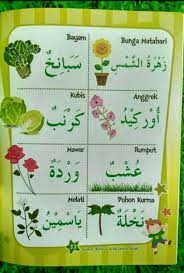 Bayam
سَبَانِخٌ
Bunga Matahari
زَهْرَةُ الشَّمْسِ
Kubis
كَرْنَبٌ
Anggrek
أُورْكِيْدُ
Mawar
وَرْدَةٌ
Rumput
عُشْبٌ
Melati
يَاسْمِيْنُ
Pohon Kurma
نَخْلَةٌ